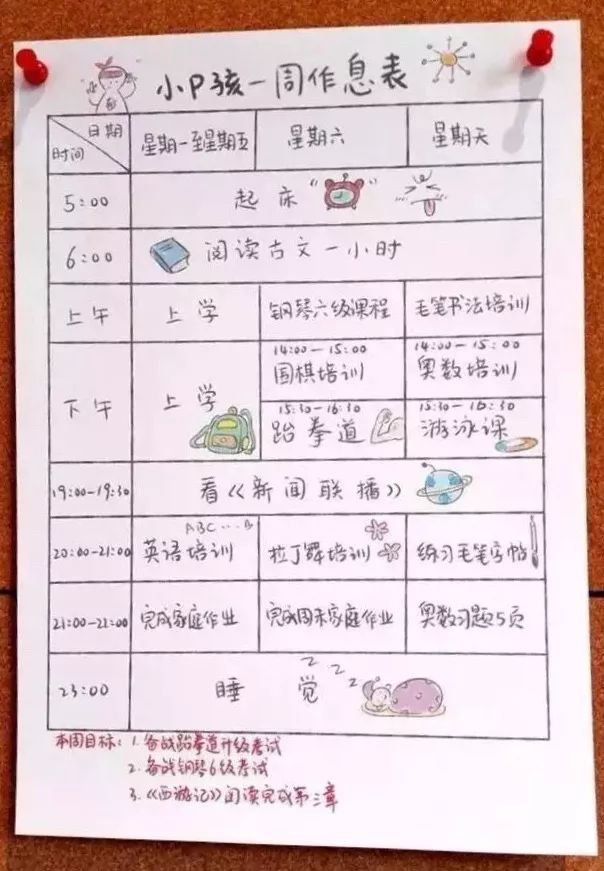 小P孩一周作息表
日期
时间
星期一至星期五 星期六 星期天
5:00 起床
6:00 阅读古文一小时
上午 上学 钢琴六级课程 毛笔书法培训
下午 上学
14:00-15:00 14:00-15:00
围棋培训 奥数培训
15:30-16:30 15:30-16:30
跆拳道 游泳课
19:00-19:30 看《新闻联播》
ABC...B
20:00-21:00 英语培训 拉丁舞培训 练习毛笔字帖
21:00-22:00 完成家庭作业 完成周末家庭作业 奥数习题5页
23:00 睡觉
z z z z
本周目标: 1.备战跆拳道升级考试
2.备战钢琴6级考试
3.《西游记》阅读完成第三章